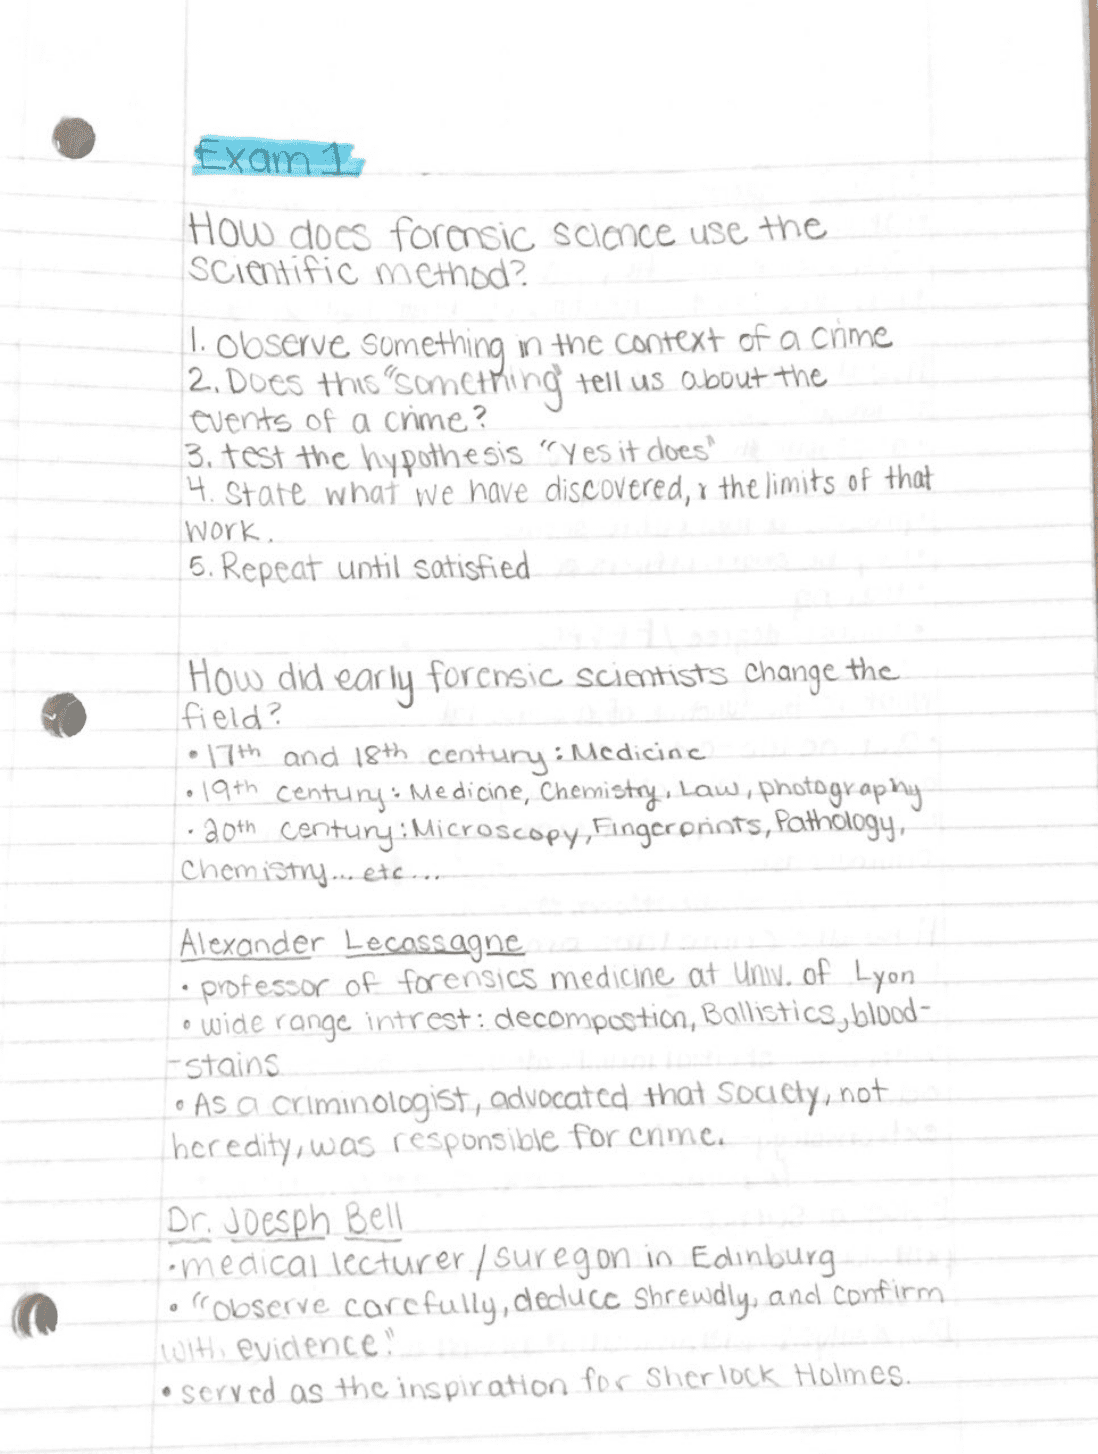 Exam 1
How does forensic science use the
scientific method?
1. observe something in the context of a crime
2. Does this "something" tell us about the
events of a crime?
3. test the hypothesis "Yes it does"
4. State what we have discovered, & the limits of that
work.
5. Repeat until satisfied
How did early forensic scientists change the
field?
• 17th and 18th century: Medicine
• 19th century: Medicine, Chemistry, Law, photography
• 20th century: Microscopy, Fingerprints, Pathology,
Chemistry... etc...
Alexander Lecassagne
• professor of forensics medicine at Univ. of Lyon
• wide range intrest: decompostion, Ballistics, blood-
-stains
• As a criminologist, advocated that Society, not
heredity, was responsible for crime.
Dr. Joesph Bell
• medical lecturer/suregon in Edinburg
• "observe carefully, deduce shrewdly, and confirm
with evidence."
• served as the inspiration for Sherlock Holmes.